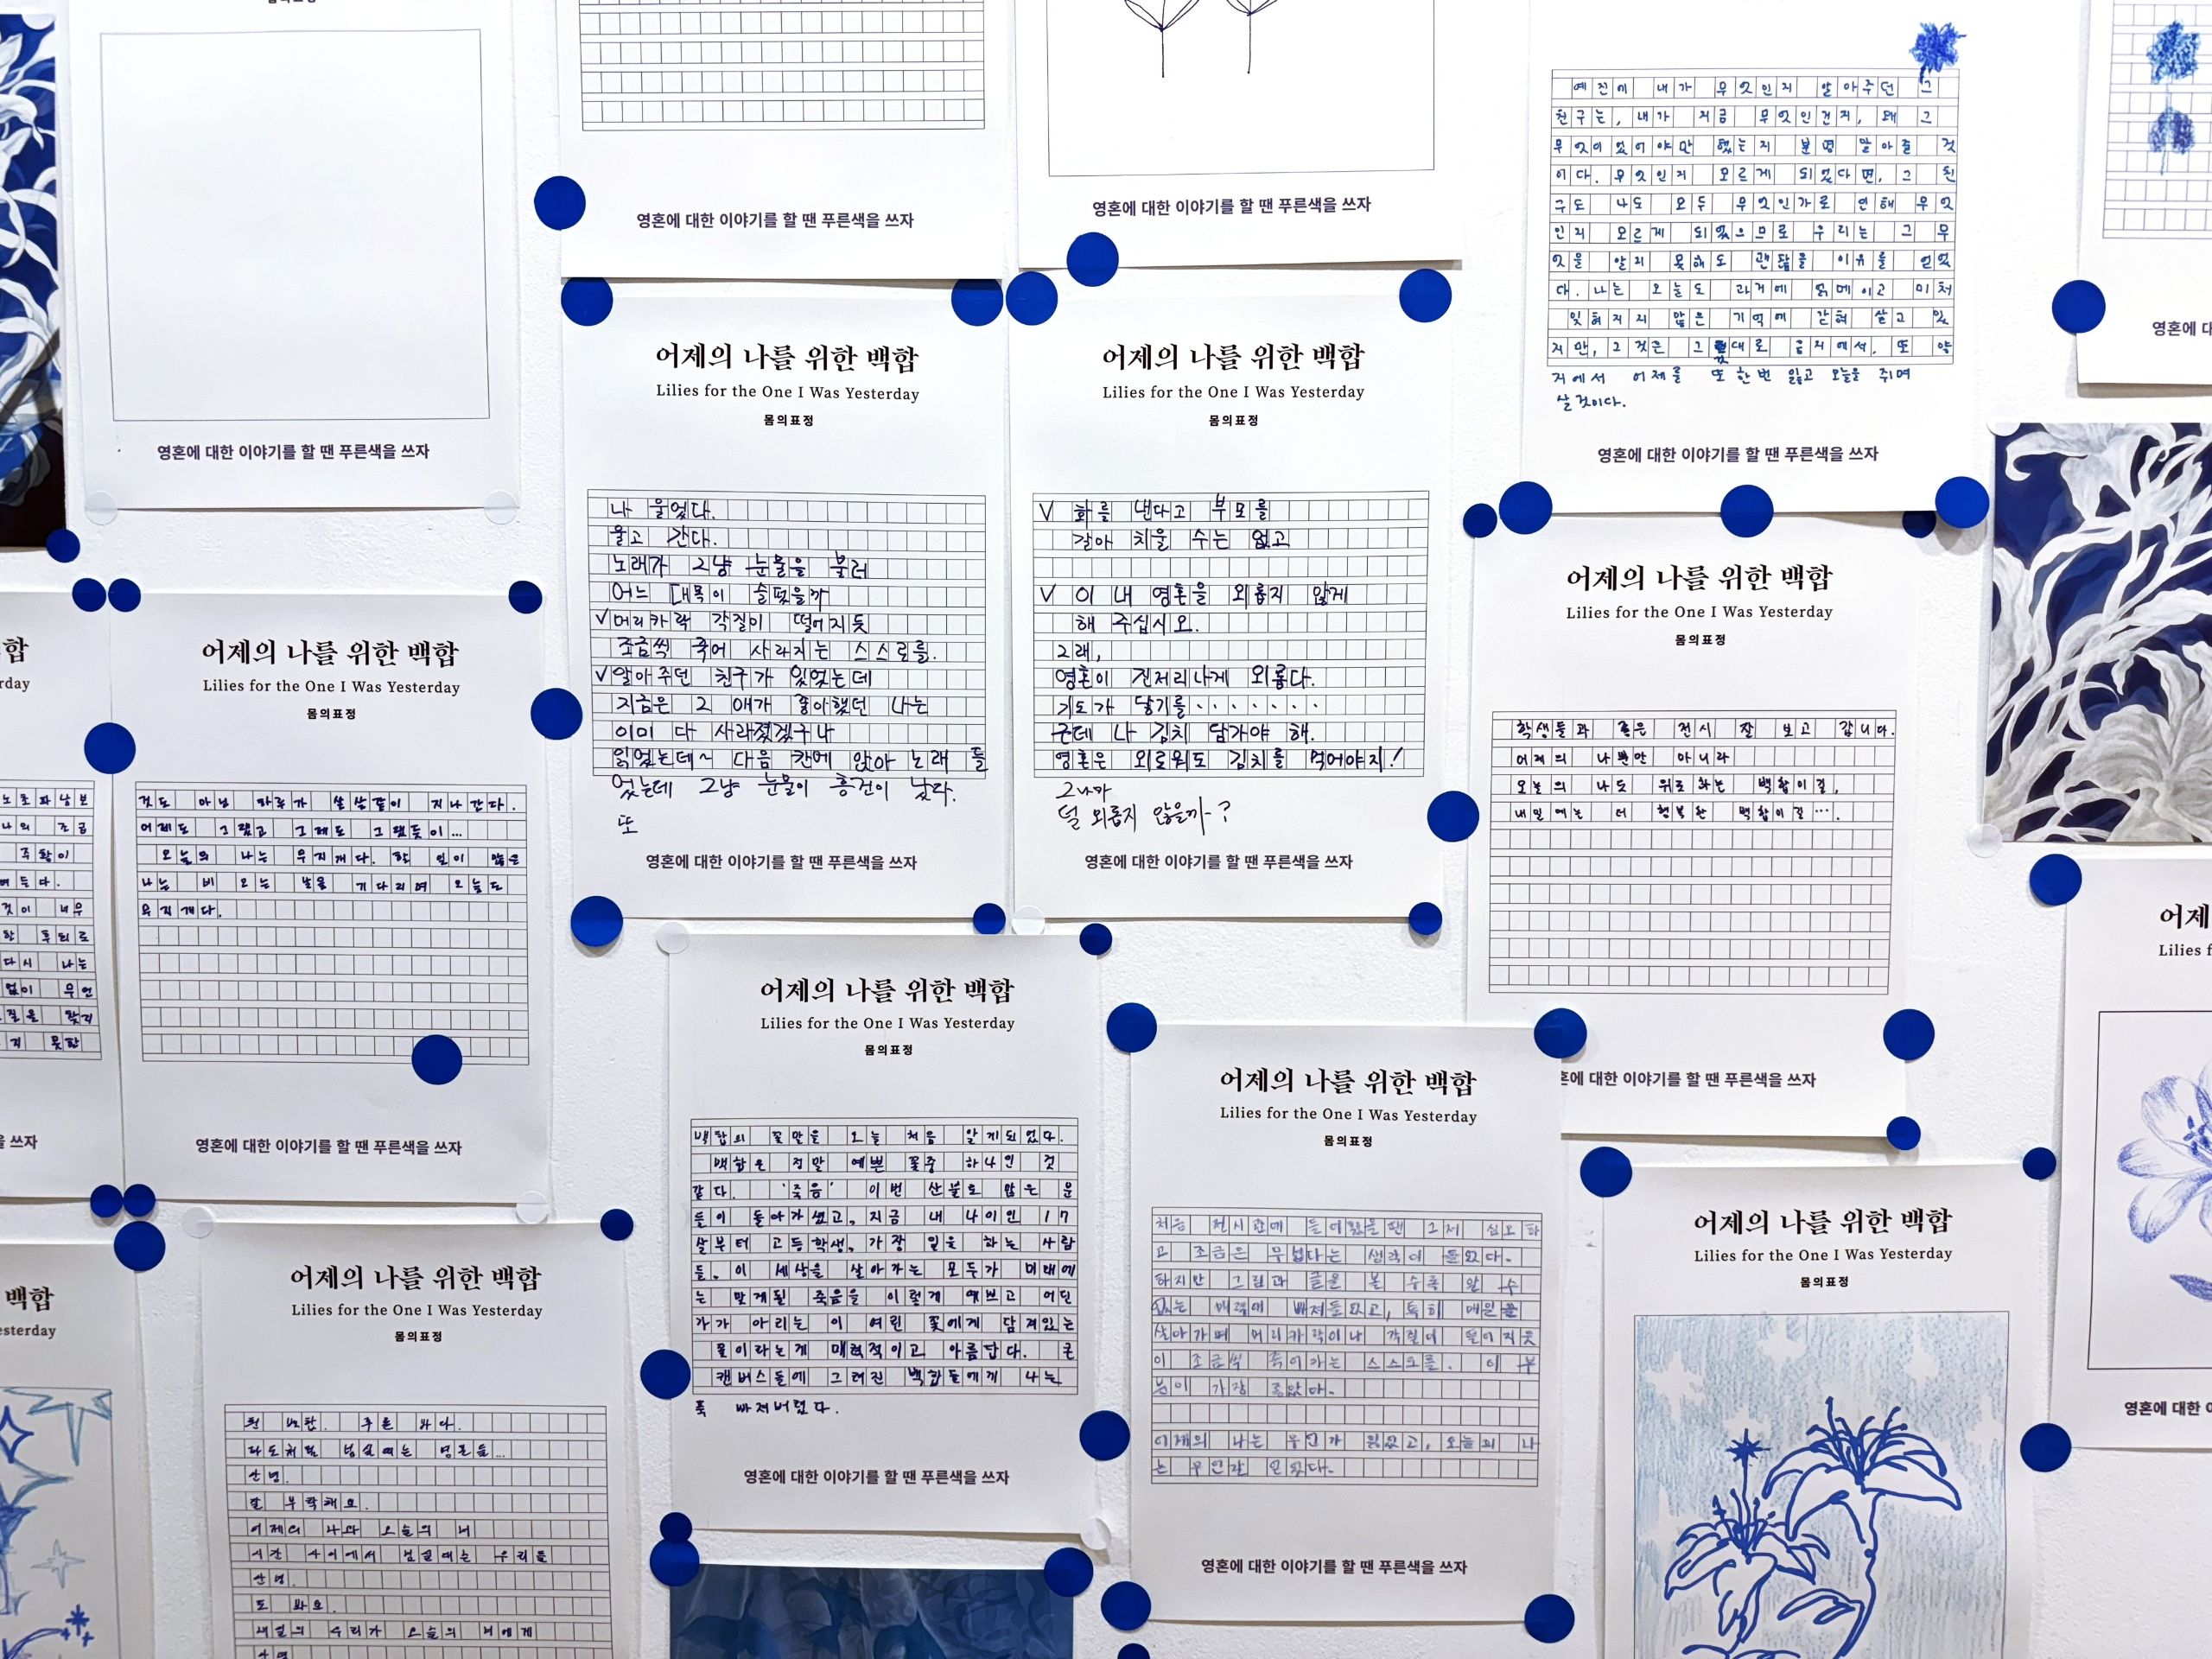 영혼에 대한 이야기를 할 땐 푸른색을 쓰자
영혼에 대한 이야기를 할 땐 푸른색을 쓰자
영혼에 대한 이야기를 할 땐 푸른색을 쓰자
예전에 내가 무엇인지 알아주던 그
친구는, 내가 지금 무엇인건지, 왜 그
무엇이 있어야만 했는지 분명 알아줄 것
이다. 무엇인지 모르게 되었다면, 그 친
구도 나도 모두 무엇인가로 인해 무엇
인지 모르게 되었으므로 우리는 그 무
엇을 알지 못해도 괜찮을 이유를 얻었
다. 나는 오늘도 과거에 얽메이고 미처
잊혀지지 않은 기억에 갇혀 살고 있
지만, 그것은 그대로 금지에서. 또 양
지에서 어제를 또 한번 잃고 오늘을 쥐며
살 것이다.
영혼에 대한 이야기를 할 땐 푸른색을 쓰자
영혼에 대
어제의 나를 위한 백합
Lilies for the One I Was Yesterday
몸의표정
나 울었다.
울고 간다.
노래가 그냥 눈물을 불러
어느 대목이 슬펐을까
√머리카락 각질이 떨어지듯
조금씩 죽어 사라지는 스스로를.
√알아주던 친구가 있었는데
지금은 그 애가 좋아했던 나는
이미 다 사라졌겠구나
읽었는데~ 다음 칸에 앉아 노래 들
었는데 그냥 눈물이 흥건이 났다.
또
영혼에 대한 이야기를 할 땐 푸른색을 쓰자
어제의 나를 위한 백합
Lilies for the One I Was Yesterday
몸의표정
√ 화를 낸다고 부모를
갈아 치울 수는 없고
√ 이 내 영혼을 외롭지 않게
해 주십시오.
그래,
영혼이 진저리나게 외롭다.
기도가 닿기를.......
근데 나 김치 담가야 해.
영혼은 외로워도 김치를 먹어야지!
그나마
덜 외롭지 않을까-?
영혼에 대한 이야기를 할 땐 푸른색을 쓰자
어제의 나를 위한 백합
Lilies for the One I Was Yesterday
몸의표정
학생들과 좋은 전시 잘 보고 갑니다.
어제의 나뿐만 아니라
오늘의 나도 위로하는 백합이길,
내일에는 더 행복한 백합이길….
혼에 대한 이야기를 할 땐 푸른색을 쓰자
합
rday
을 쓰자
어제의 나를 위한 백합
Lilies for the One I Was Yesterday
몸의표정
것도 아닌 하루가 쏜살같이 지나간다.
어제도 그랬고 그제도 그랬듯이...
오늘의 나는 무지개다. 할 일이 많은
나는 비 오는 날을 기다리며 오늘도
무지개다.
영혼에 대한 이야기를 할 땐 푸른색을 쓰자
어제의 나를 위한 백합
Lilies for the One I Was Yesterday
몸의표정
백합의 꽃말을 오늘 처음 알게되었다.
백합은 정말 예쁜 꽃중 하나인 것
같다. '죽음' 이번 산불로 많은 분
들이 돌아가셨고, 지금 내 나이인 17
살부터 고등학생, 가장 일을 하는 사람
들. 이 세상을 살아가는 모두가 미래에
는 맞게될 죽음을 이렇게 예쁘고 어딘
가가 아리는 이 여린 꽃에게 담겨있는
꽃이라는게 매력적이고 아름답다. 큰
캔버스들에 그려진 백합들에게 나는
푹 빠져버렸다.
영혼에 대한 이야기를 할 땐 푸른색을 쓰자
어제의 나를 위한 백합
Lilies for the One I Was Yesterday
몸의표정
처음 전시관에 들어왔을땐 그저 심오하
고 조금은 무섭다는 생각이 들었다.
하지만 그림과 글을 볼 수록 알 수
없는 매력에 빠져들었고, 특히 매일을
살아가며 머리카락이나 각질이 떨어지듯
이 조금씩 죽어가는 스스로를. 이 부
분이 가장 좋았다.
어제의 나는 무언가 잃었고, 오늘의 나
는 무언갈 얻었다.
영혼에 대한 이야기를 할 땐 푸른색을 쓰자
어제의 나를 위한 백합
Lilies for the One I Was Yesterday
몸의표정
안녕.
잘 부탁해요.
어제의 나와 오늘의 너
시간 사이에서 넘실대는 우리들
안녕.
또 봐요.
내일의 우리가 오늘의 너에게
안녕
백합
esterday
어제의 나를 위한 백합
Lilies for the One I Was Yesterday
몸의표정
어제
Lilies f
영혼에 대한 이